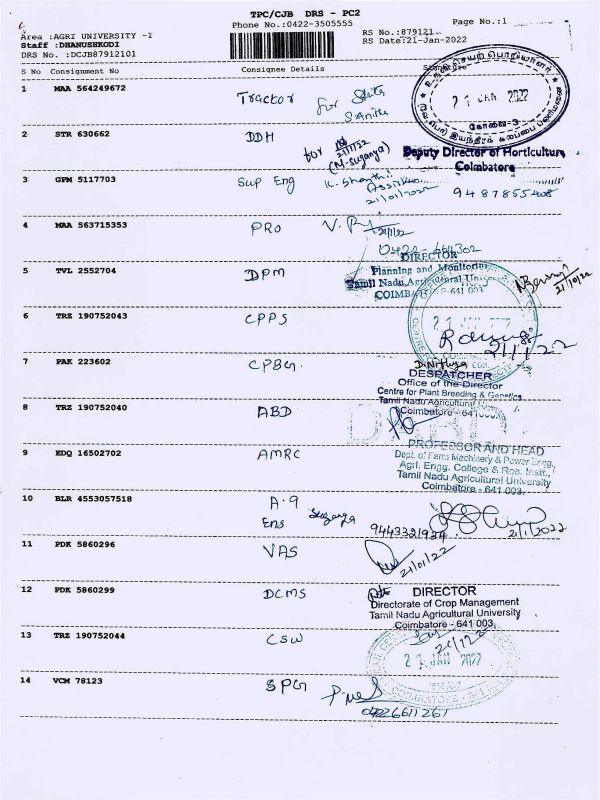 TPC/CJB DRS - PC2
Phone No.:0422-3505555
Page No.:1
Area :AGRI UNIVERSITY -1
Staff :DHANUSHKODI
DRS No. :DCJB87912101
RS No.:879121
RS Date:21-Jan-2022
S No Consignment No Consignee Details
1 MAA 564249672 Tractor for
21 JAN 2022
கோவை-3
2 STR 630662 DDH for
21/1/22
(N. Suganya)
Deputy Director of Horticulture
Coimbatore
3 GPM 5117703 Sup Eng K. Shanthi
21/01/2022
9487855408
4 MAA 563715353 PRO
21/1/22
DIRECTOR
5 TVL 2552704 DPM
Planning and Monitoring
Tamil Nadu Agricultural University
COIMBATORE-641 003
6 TRZ 190752043 CPPS
21 JAN 2022
21/1/22
7 PAK 223602 CPBG.
D. Nithya
DESPATCHER
Office of the Director
Centre for Plant Breeding & Genetics
Tamil Nadu Agricultural University
Coimbatore - 641 003.
8 TRZ 190752040 ABD
9 EDQ 16502702 AMRC
PROFESSOR AND HEAD
Dept. of Farm Machinery & Power Engg.,
Agrl. Engg. College & Res. Instt.,
Tamil Nadu Agricultural University
Coimbatore - 641 003.
10 BLR 4553057518 A.9
Ens Suganya
9443321934
21/1/2022
11 PDK 5860296 VAS
21/01/22
12 PDK 5860299 DCMS
DIRECTOR
Directorate of Crop Management
Tamil Nadu Agricultural University
Coimbatore - 641 003
13 TRZ 190752044 CSW
21 JAN 2022
TNAU
COIMBATORE
14 VCM 78123 SPG
04226611261